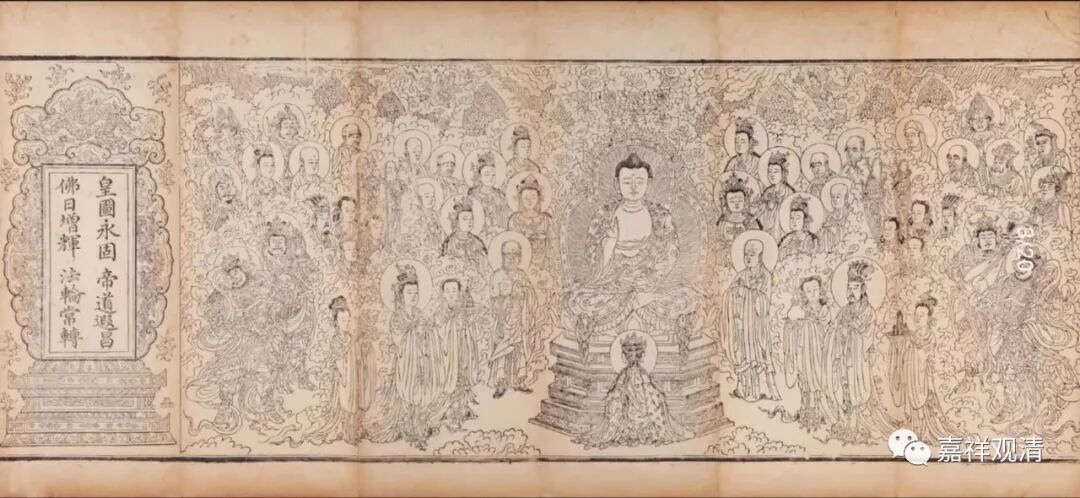 皇圖永固 帝道遐昌
佛日增輝 法輪常轉
8/20
嘉祥观清